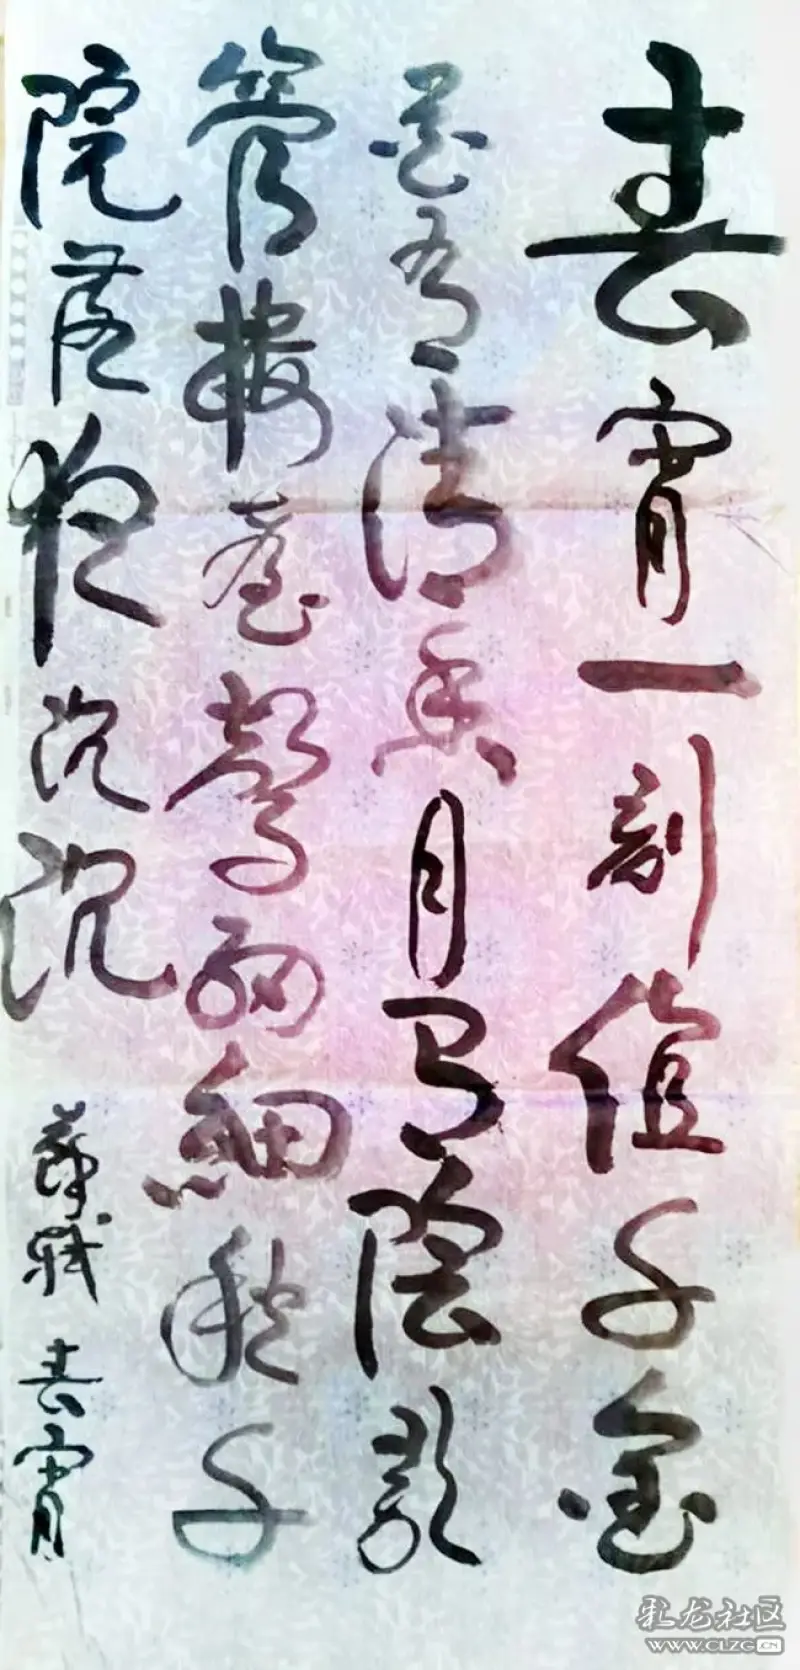 春宵一刻值千金
花有清香月有陰歌
管樓臺聲細細秋千
院落夜沉沉
蘇軾 春宵
彩龙社区
WWW.CLZG.CN